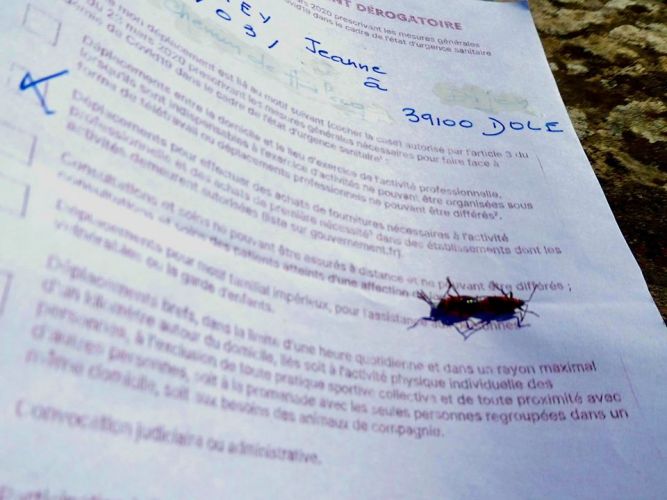 NT DÉROGATOIRE
2020 prescrivant les mesures générales
dans le cadre de l'état d'urgence sanitaire
Jeanne
Chemin de
à
39100 DOLE
mon déplacement est lié au motif suivant (cocher la case) autorisé par l'article 3 du
du 23 mars 2020 prescrivant les mesures générales nécessaires pour faire face à
de Covid19 dans le cadre de l'état d'urgence sanitaire¹ :
Déplacements entre le domicile et le lieu d'exercice de l'activité professionnelle,
lorsqu'ils sont indispensables à l'exercice d'activités ne pouvant être organisées sous
forme de télétravail ou déplacements professionnels ne pouvant être différés².
Déplacements pour effectuer des achats de fournitures nécessaires à l'activité
professionnelle et des achats de première nécessité³ dans des établissements dont les
activités demeurent autorisées (liste sur gouvernement.fr).
Consultations et soins ne pouvant être assurés à distance et ne pouvant être différés ;
consultations et soins des patients atteints d'une affection
Déplacements pour motif familial impérieux, pour l'assistance aux personnes
vulnérables ou la garde d'enfants.
Déplacements brefs, dans la limite d'une heure quotidienne et dans un rayon maximal
d'un kilomètre autour du domicile, liés soit à l'activité physique individuelle des
personnes, à l'exclusion de toute pratique sportive collective et de toute proximité avec
d'autres personnes, soit à la promenade avec les seules personnes regroupées dans un
même domicile, soit aux besoins des animaux de compagnie.
Convocation judiciaire ou administrative.